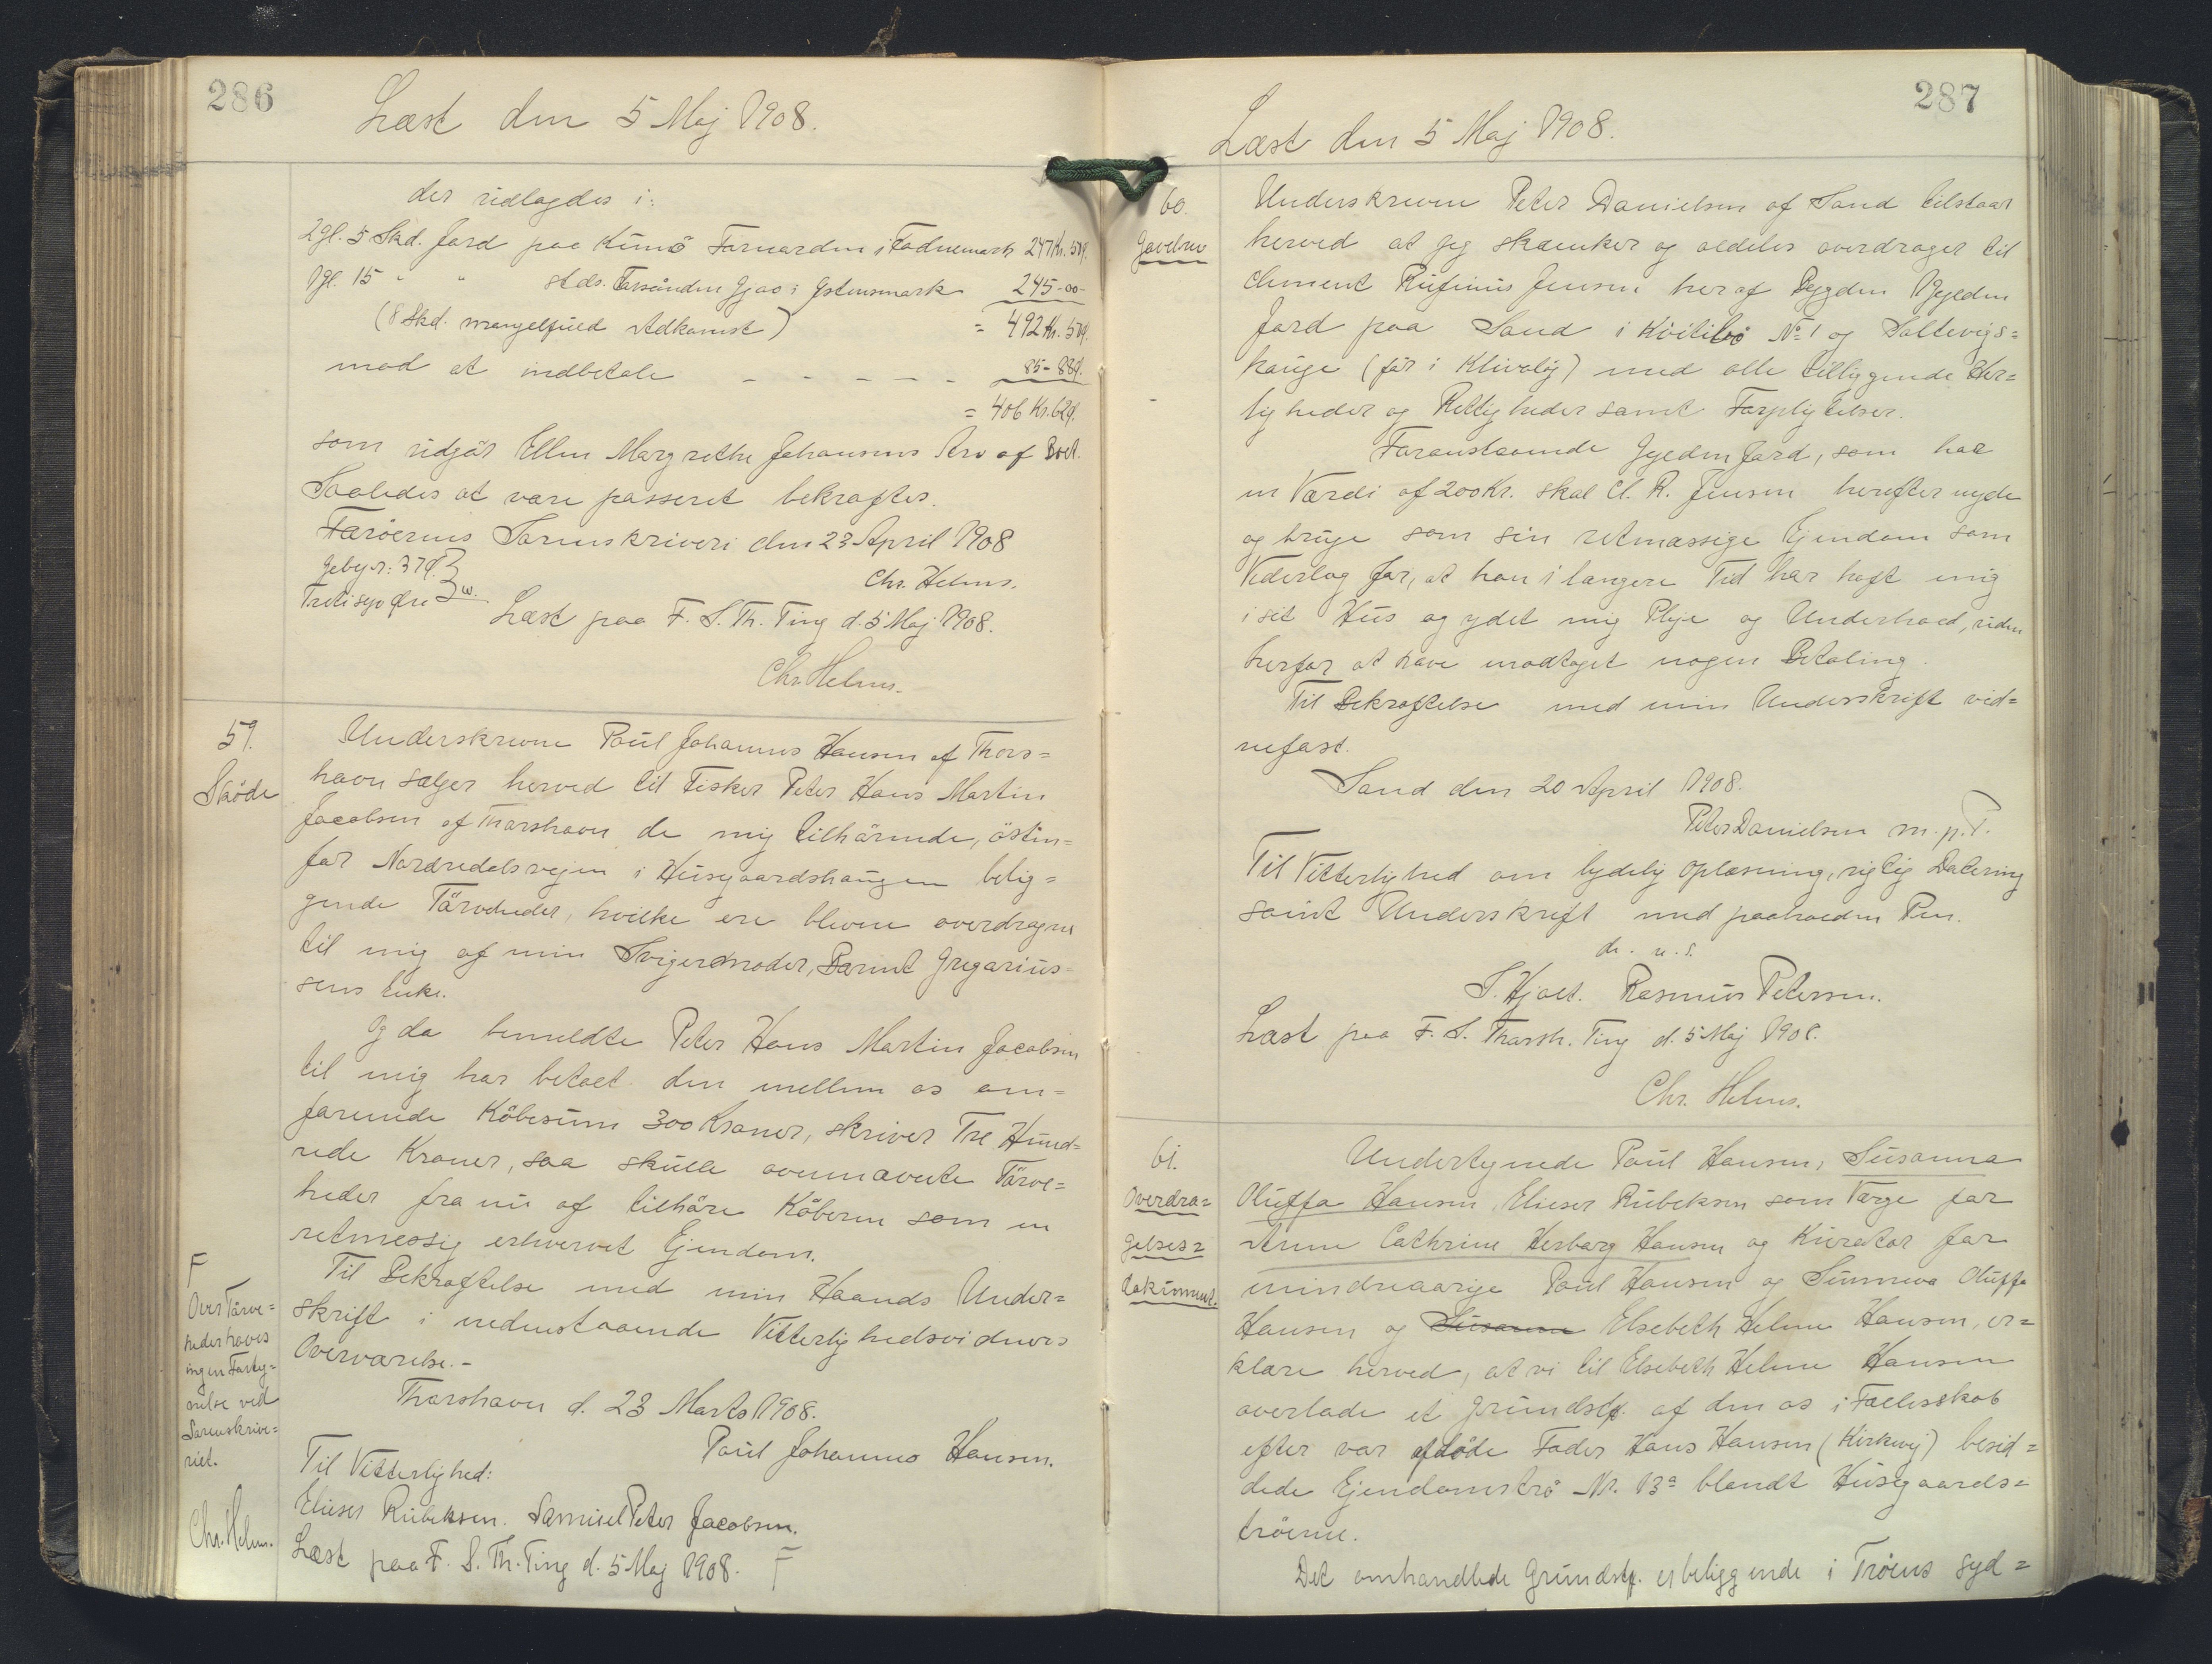 286
Læst den 5 Maj 1908.
der udlagdes i:
2gl. 5 Skd. Jord paa Kunö Fornorden i Fadnemark 247 Kr. 50ø.
1gl. 15 " " stds. i Ystensmark 245-00-
(8 Skd. mangelfuld Adkomst) = 492 Kr. 50ø.
mod at indbetale - - - - - 85-88ø.
= 406 Kr. 62ø.
som udgør Ellen Margrethe Johansens Arv af Boet.
Saaledes at være passeret bekræftes.
Færöernes Sorenskriveri den 23 April 1908
Gebyr: 37ø.
Chr. Helms.
Tretisyv Øre
Læst paa F. S. Th. Ting d. 5 Maj 1908.
Chr. Helms.
59.
Skøde
Underskrevne Poul Johannes Hansen af Thors=
havn sælger herved til Fisker Peter Hans Martin
Jacobsen af Thorshavn de mig tilhörende, östen=
for Nordredalsvejen i Husgaardshaugen belig=
gende Törveheder, hvilke ere blevne overdragne
til mig af min Svigermoder, Berent Gregorius=
sens Enke.
Og da bemeldte Peter Hans Martin Jacobsen
til mig har betalt den mellem os om=
forenede Köbesum 300 Kroner, skriver Tre Hund=
rede Kroner, saa skulle ovennævnte Törve=
heder fra nu af tilhöre Köberen som en
retmessig erhvervet Ejendom.
Til Bekræftelse med min Haands Under=
skrift i nedenstaaende Vitterlighedsvidners
Overværelse.-
Thorshavn d. 23 Marts 1908.
Poul Johannes Hansen.
Til Vitterlighed:
Elieser Rubeksen. Samuel Peter Jacobsen.
Læst paa F. S. Th. Ting d. 5 Maj 1908. F
F
Over Törve=
heder haves
ingen Forteg=
nelse ved
Sorenskrive=
riet.
Chr. Helms.
287
Læst den 5 Maj 1908.
60.
Gavebrev
Underskrevne Peter Danielsen af Sand tilstaar
herved at jeg skænker og aldeles overdrager til
Clement Rufinus Jensen her af Bygden 1 Gylden
Jord paa Sand i Kvitibö No 1 og Saltevigs=
hauge (för i Klivalöj) med alle tilliggende Her=
ligheder og Rettigheder samt Forpligtelser.
Foranstaaende Gylden Jord, som har
en Værdi af 200 Kr. skal Cl. R. Jensen herefter nyde
og bruge som sin retmæssige Ejendom som
Vederlag for, at han i længere Tid har haft mig
i sit Hus og ydet mig Pleje og Underhold, uden
herfor at have modtaget nogen Betaling.
Til Bekræftelse med min Underskrift vid=
nefast.
Sand den 20 April 1908.
Peter Danielsen m. p. P.
Til Vitterlighed om lydelig Oplæsning, rigtig Datering
samt Underskrift med paaholden Pen.
d. u. s.
S. Hjalt. Rasmus Petersen.
Læst paa F. S. Thorsh. Ting d. 5 Maj 1908.
Chr. Helms.
61.
Overdra=
gelses=
dokument.
Undertegnede Poul Hansen, Susanna
Oluffa Hansen, Elieser Rubeksen som Værge for
Anne Cathrine Herborg Hansen og Kurator for
mindreaarige Poul Hansen og Sunneva Oluffa
Hansen og Susanna Elsebeth Helene Hansen, er=
klære herved, at vi til Elsebeth Helene Hansen
overlade et Grundstk. af den os i Fællesskab
efter vor afdöde Fader Hans Hansen (Kirkevej) besid=
dede Ejendomströ Nr. 13a blandt Husgaards=
tröerne.
Det omhandlede Grundstk. er beliggende i Tröens syd=